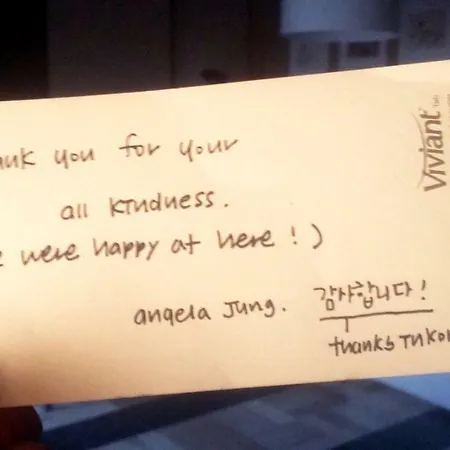 ank you for your
all kindness.
e were happy at here ! )
angela Jung. 감사합니다!
thanks in Kor
Viviant